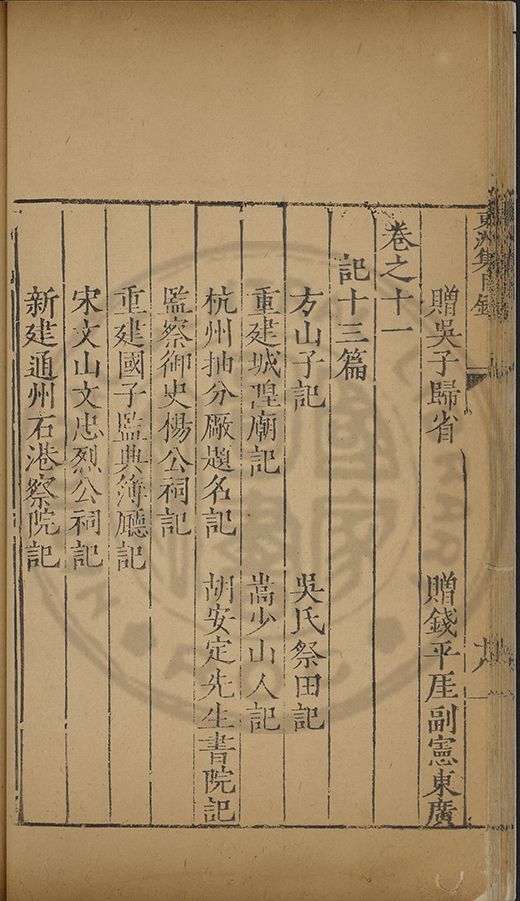 東洲集目錄
贈吳子歸省 贈錢平厓副憲東廣
卷之十一
記十三篇
方山子記 吳氏祭田記
重建城隍廟記 嵩少山人記
杭州抽分廠題名記 胡安定先生書院記
監察御史楊公祠記
重建國子監典簿廳記
宋文山文忠烈公祠記
新建通州石港察院記